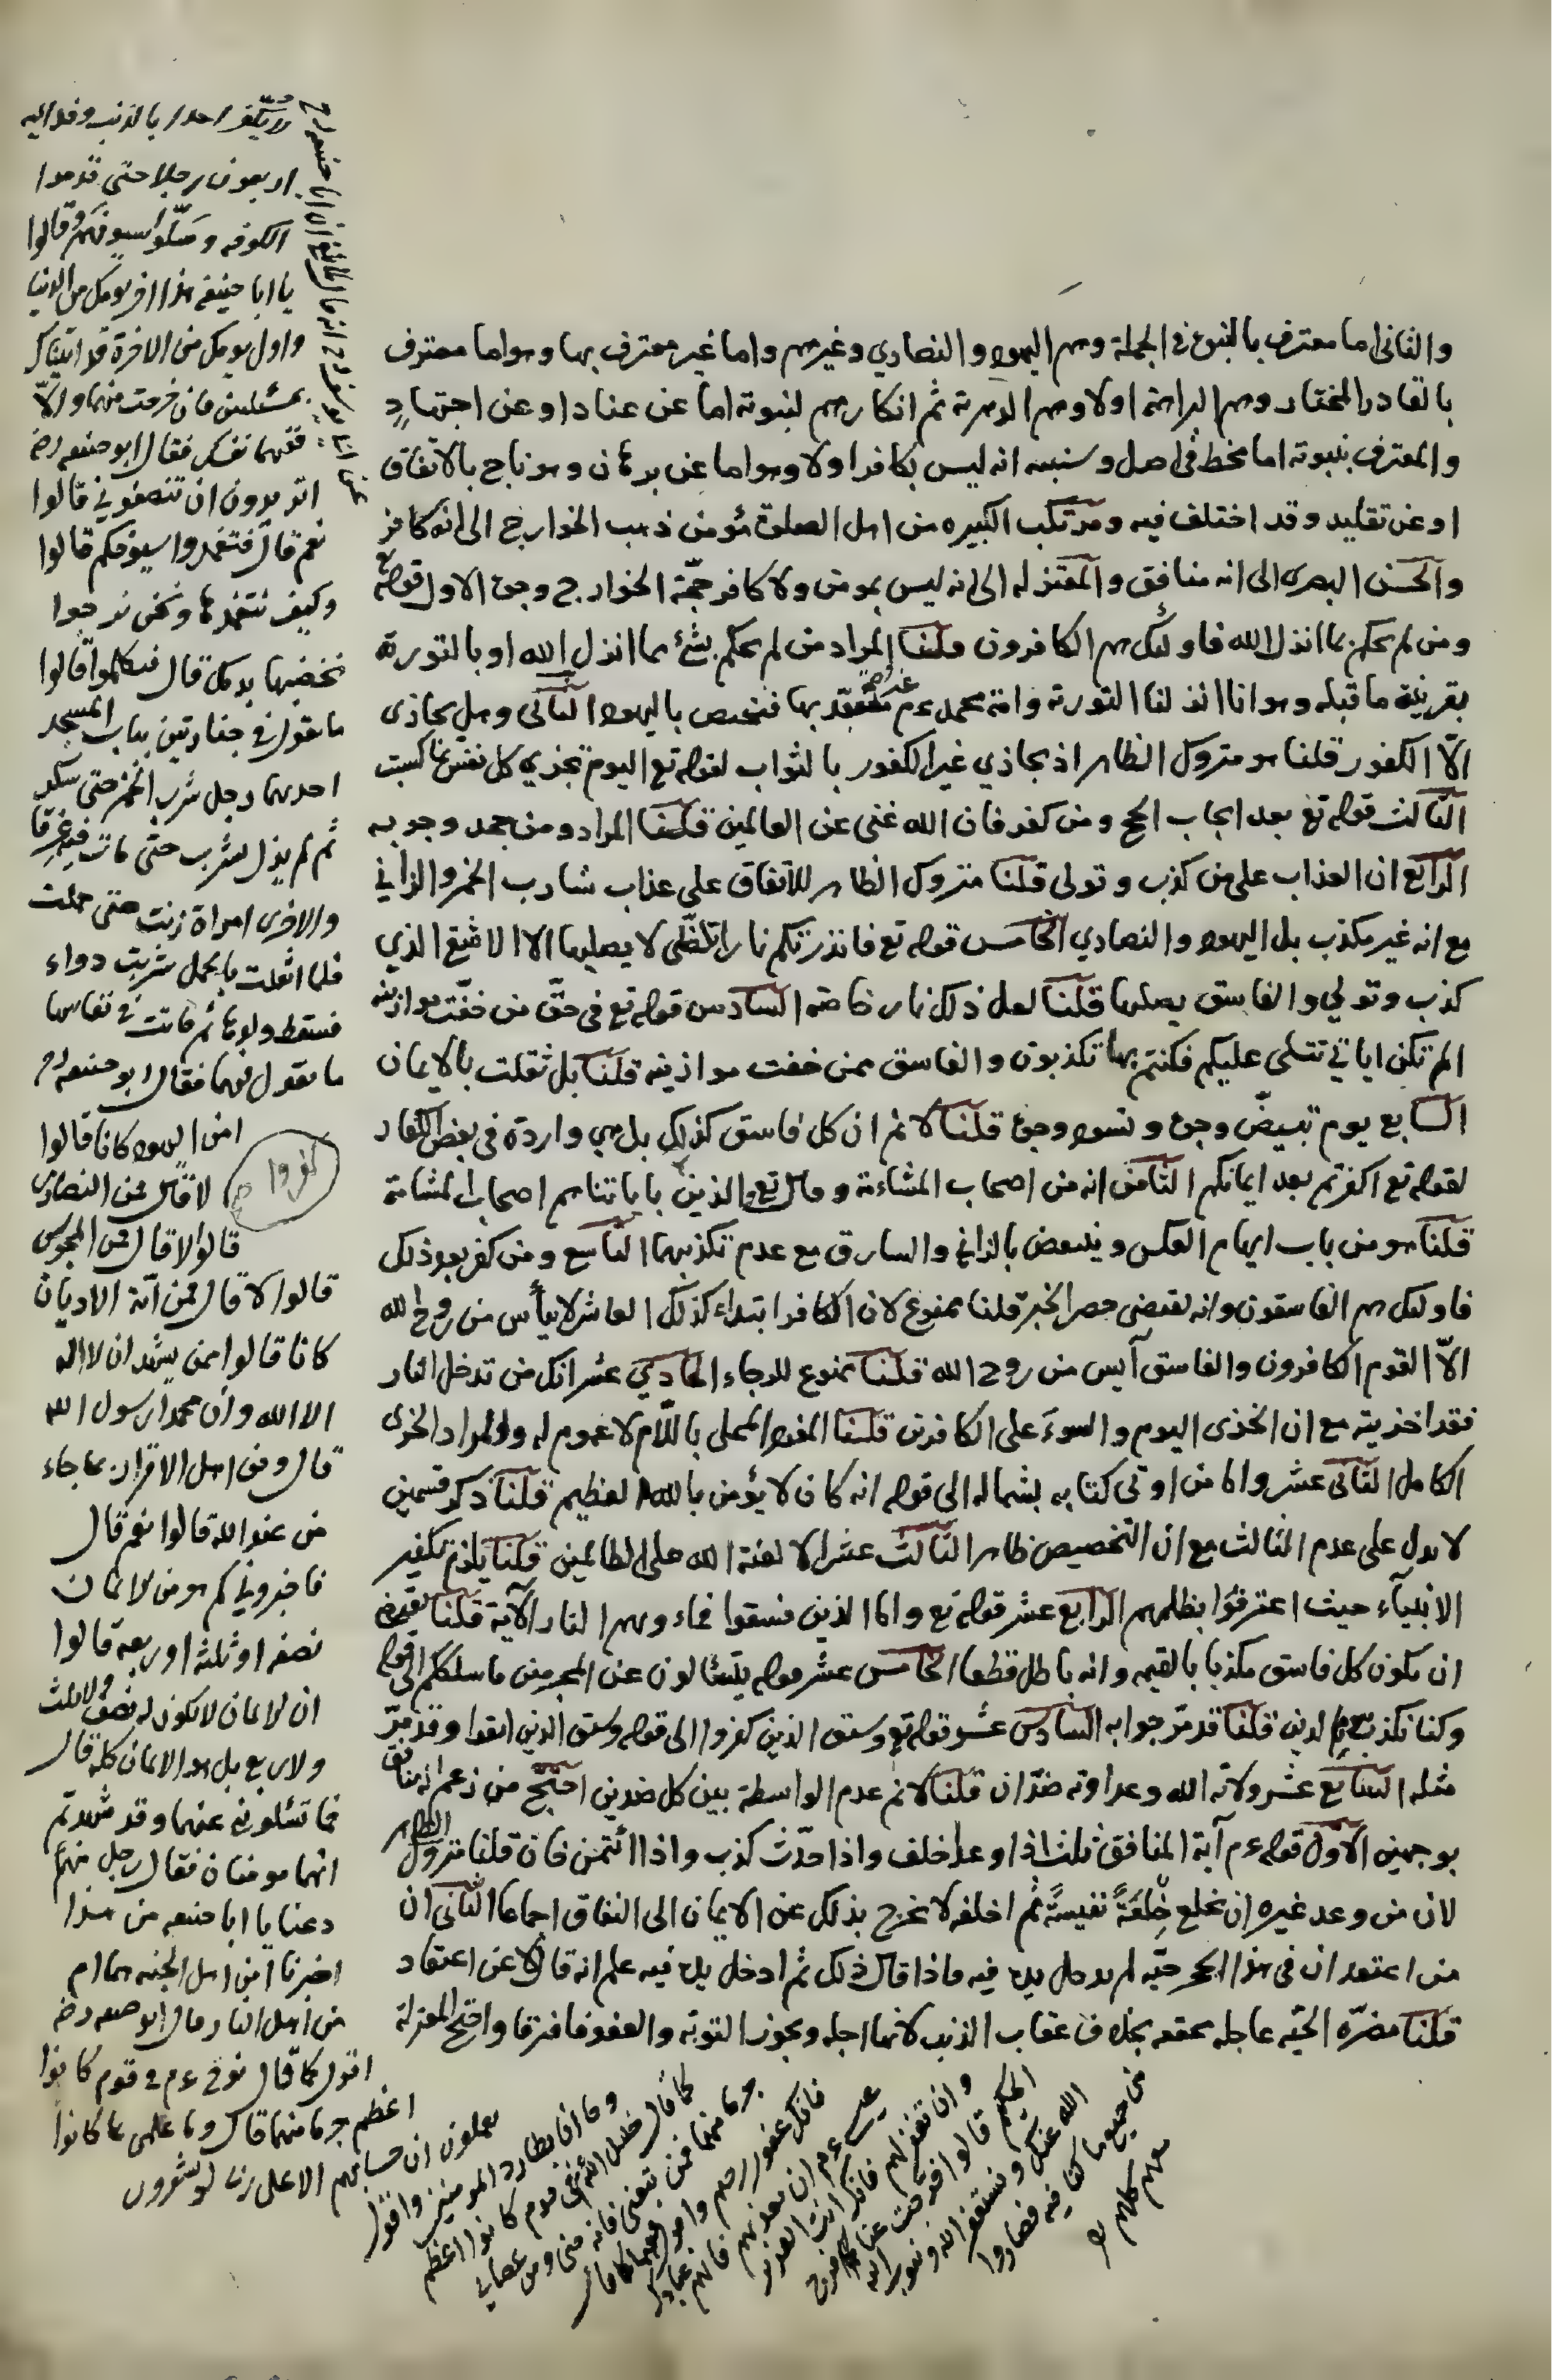 والثانى اما معترف بالنبوة فى الجملة وهم اليهود والنصارى وغيرهم واما غير معترف بها وهو اما معترف
بالقادر المختار وهم البراهمة اولا وهم الدهرية ثم انكارهم لنبوته اما عن عناد او عن اجتهاد
والمعترف بنبوته اما مخطئ فى اصل وسنبينه انه ليس بكافر اولا وهو اما عن برهان وهو ناج بالاتفاق
او عن تقليد وقد اختلف فيه ومرتكب الكبيره من اهل الصلوة مؤمن ذهب الخوارج الى انه كافر
والحسن البصرى الى انه منافق والمعتزله الى انه ليس بمومن ولا كافر حجّة الخوارج وجوه الاول قوله تع
ومن لم يحكم بما انزل الله فاولئك هم الكافرون قلنا المراد من لم يحكم بشئ مما انزل الله او بالتورية
بقرينة ما قبله وهو انا انزلنا التورية وامة محمد ءم غير متعبد بها فتخص باليهود الثانى وهل يجازى
الّا الكفور قلنا هو متروك الظاهر اذ يجازي غير الكفور بالثواب لقوله تع اليوم تجزي كل نفس بما كسبت
الثالث قوله تع بعد ايجاب الحج ومن كفر فان الله غنى عن العالمين قلنا المراد ومن جحد وجوبه
الرابع ان العذاب على من كذب وتولى قلنا متروك الظاهر للاتفاق على عذاب شارب الخمر والزاني
مع انه غير مكذب بل اليهود والنصاري الخامس قوله تع فانذرتكم نارا تلظّى لا يصليها الا الاشقى الذي
كذب وتولي والفاسق يصليها قلنا لعل ذلك نار خاصة السادس قوله تع فى حقّ من خفّت موازينه
الم تكن اياتي تتلى عليكم فكنتم بها تكذبون والفاسق ممن خفت موازينه قلنا بل ثقلت بالايمان
السابع يوم تبيضّ وجوه وتسود وجوه قلنا لا نم ان كل فاسق كذلك بل هي واردة فى بعض الكفار
لقوله تع اكفرتم بعد ايمانكم الثامن انه من اصحاب المشاءمة وقال تع والذين باياتنا هم اصحاب المشامة
قلنا هو من باب ايهام العكس وينتقض بالزانى والسارق مع عدم تكذيبهما التاسع ومن كفر بعد ذلك
فاولئك هم الفاسقون وانه يقتضى حصر الخبر قلنا ممنوع لان الكافر ابتداء كذلك العاشر لا ييأس من روح الله
الّا القوم الكافرون والفاسق آيس من روح الله قلنا ممنوع للرجاء الحادي عشر انك من تدخل النار
فقد اخزيته مع ان الخزى اليوم والسوء على الكافرين قلنا المفرد المحلى باللّام لا عموم له والمراد الخزى
الكامل الثانى عشر واما من اوتى كتابه بشماله الى قوله انه كان لا يؤمن بالله العظيم قلنا ذكر قسمين
لا يدل على عدم الثالث مع ان التخصيص ظاهر الثالث عشر الا لعنة الله على الظالمين قلنا يلزم تكفير
الانبياء حيث اعترفوا بظلمهم الرابع عشر قوله تع واما الذين فسقوا فماءويهم النار الآية قلنا يقتضى
ان يكون كل فاسق مكذبا بالقيمة وانه باطل قطعا الخامس عشر قوله يتسائلون عن المجرمين ما سلككم الى قوله
وكنا نكذب بيوم الدين قلنا قد مرّ جوابه السادس عشر قوله تع وسيق الذين كفروا الى قوله وسيق الذين اتقوا وقد مرّ
مثله السابع عشر ولاية الله وعداوته ضدّان قلنا لا نم عدم الواسطة بين كل ضدين احتجّ من زعم انه منافق
بوجهين الاول قوله ءم آية المنافق ثلث اذا وعد اخلف واذا حدّث كذب واذا ائتمن خان قلنا متروك الظاهر
لان من وعد غيره ان يخلع خِلعَةً نفيسةً ثم اخلفه لا يخرج بذلك عن الايمان الى النفاق اجماعا الثانى ان
من اعتقد ان فى هذا الجحر حيّه لم يدخل يده فيه فاذا قال ذلك ثم ادخل يده فيه علم انه قال لا عن اعتقاد
قلنا مضرّه الحيّه عاجله محققه بخلاف عقاب الذنب لانها اجله ويجوز التوبة والعفو فافترقا واحتج المعتزلة
يكفّر احدا بالذنب وفد اليه
اربعون رجلا حتى قدموا
الكوفه وسَلّوا سيوفهم وقالوا
يا ابا حنيفه هذا اخر يومك من الدنيا
واول يومك من الاخرة قد اتيناك
بمسئلتين فان خرجت منهما والّا
ففيهما نفسك فقال ابو حنيفه رض
اتريدون ان تنصفوني قالوا
نعم قال فتغمدوا سيوفكم قالوا
وكيف نغمدها ونحن نرجوا
نخضبها بدمك قال فتكلموا قالوا
ما تقول فى جنازتين بباب المسجد
احديهما رجل شرب الخمر حتى سكر
ثم لم يزل يشرب حتى مات فيه غرقا
والاخرى امراة زنت حتى حملت
فلما اثقلت بالحمل شربت دواء
فسقط ولدها ثم ماتت فى نفاسها
ما تقول فيهما فقال ابو حنيفه رح
امن اليهود كانا قالوا
لا قال فمن النصارى
قالوا لا قال فمن المجوس
قالوا لا قال فمن ايّة الاديان
كانا قالوا ممن يشهد ان لا اله
الا الله وان محمدا رسول الله
قال ومن اهل الاقرار بما جاء
من عند الله قالوا نعم قال
فاخبروني كم هو من الايمان
نصفه او ثلثه او ربعه قالوا
ان الايمان لا يكون له نصف ولا ثلث
ولا ربع بل هو الايمان كله قال
فما تسئلوني عنهما وقد شهدتم
انهما مومنان فقال رجل منهم
دعنا يا ابا حنيفه من هذا
اخبرنا امن اهل الجنه هما ام
من اهل النار قال ابو حنيفه رض
اقول كما قال نوح ءم فى قوم كانوا
اعظم جرما منهما قال وما علمى بما كانوا
يعملون ان حسابهم الا على ربى لو تشعرون
وما انا بطارد المومنين واقول
كما قال خليل الله فى قوم كانوا اعظم
جرما منهما فمن تبعنى فانه منى ومن عصانى
فانك غفور رحيم واقول فيهما كما قال
عيسى ءم ان تعذبهم فانهم عبادك
وان تغفر لهم فانك انت العزيز
الحكيم قالوا فرجت عنا
الله عنك ونستغفر الله ونتوب اليه
من جميع ما كنا فيه فصاروا
كفروا